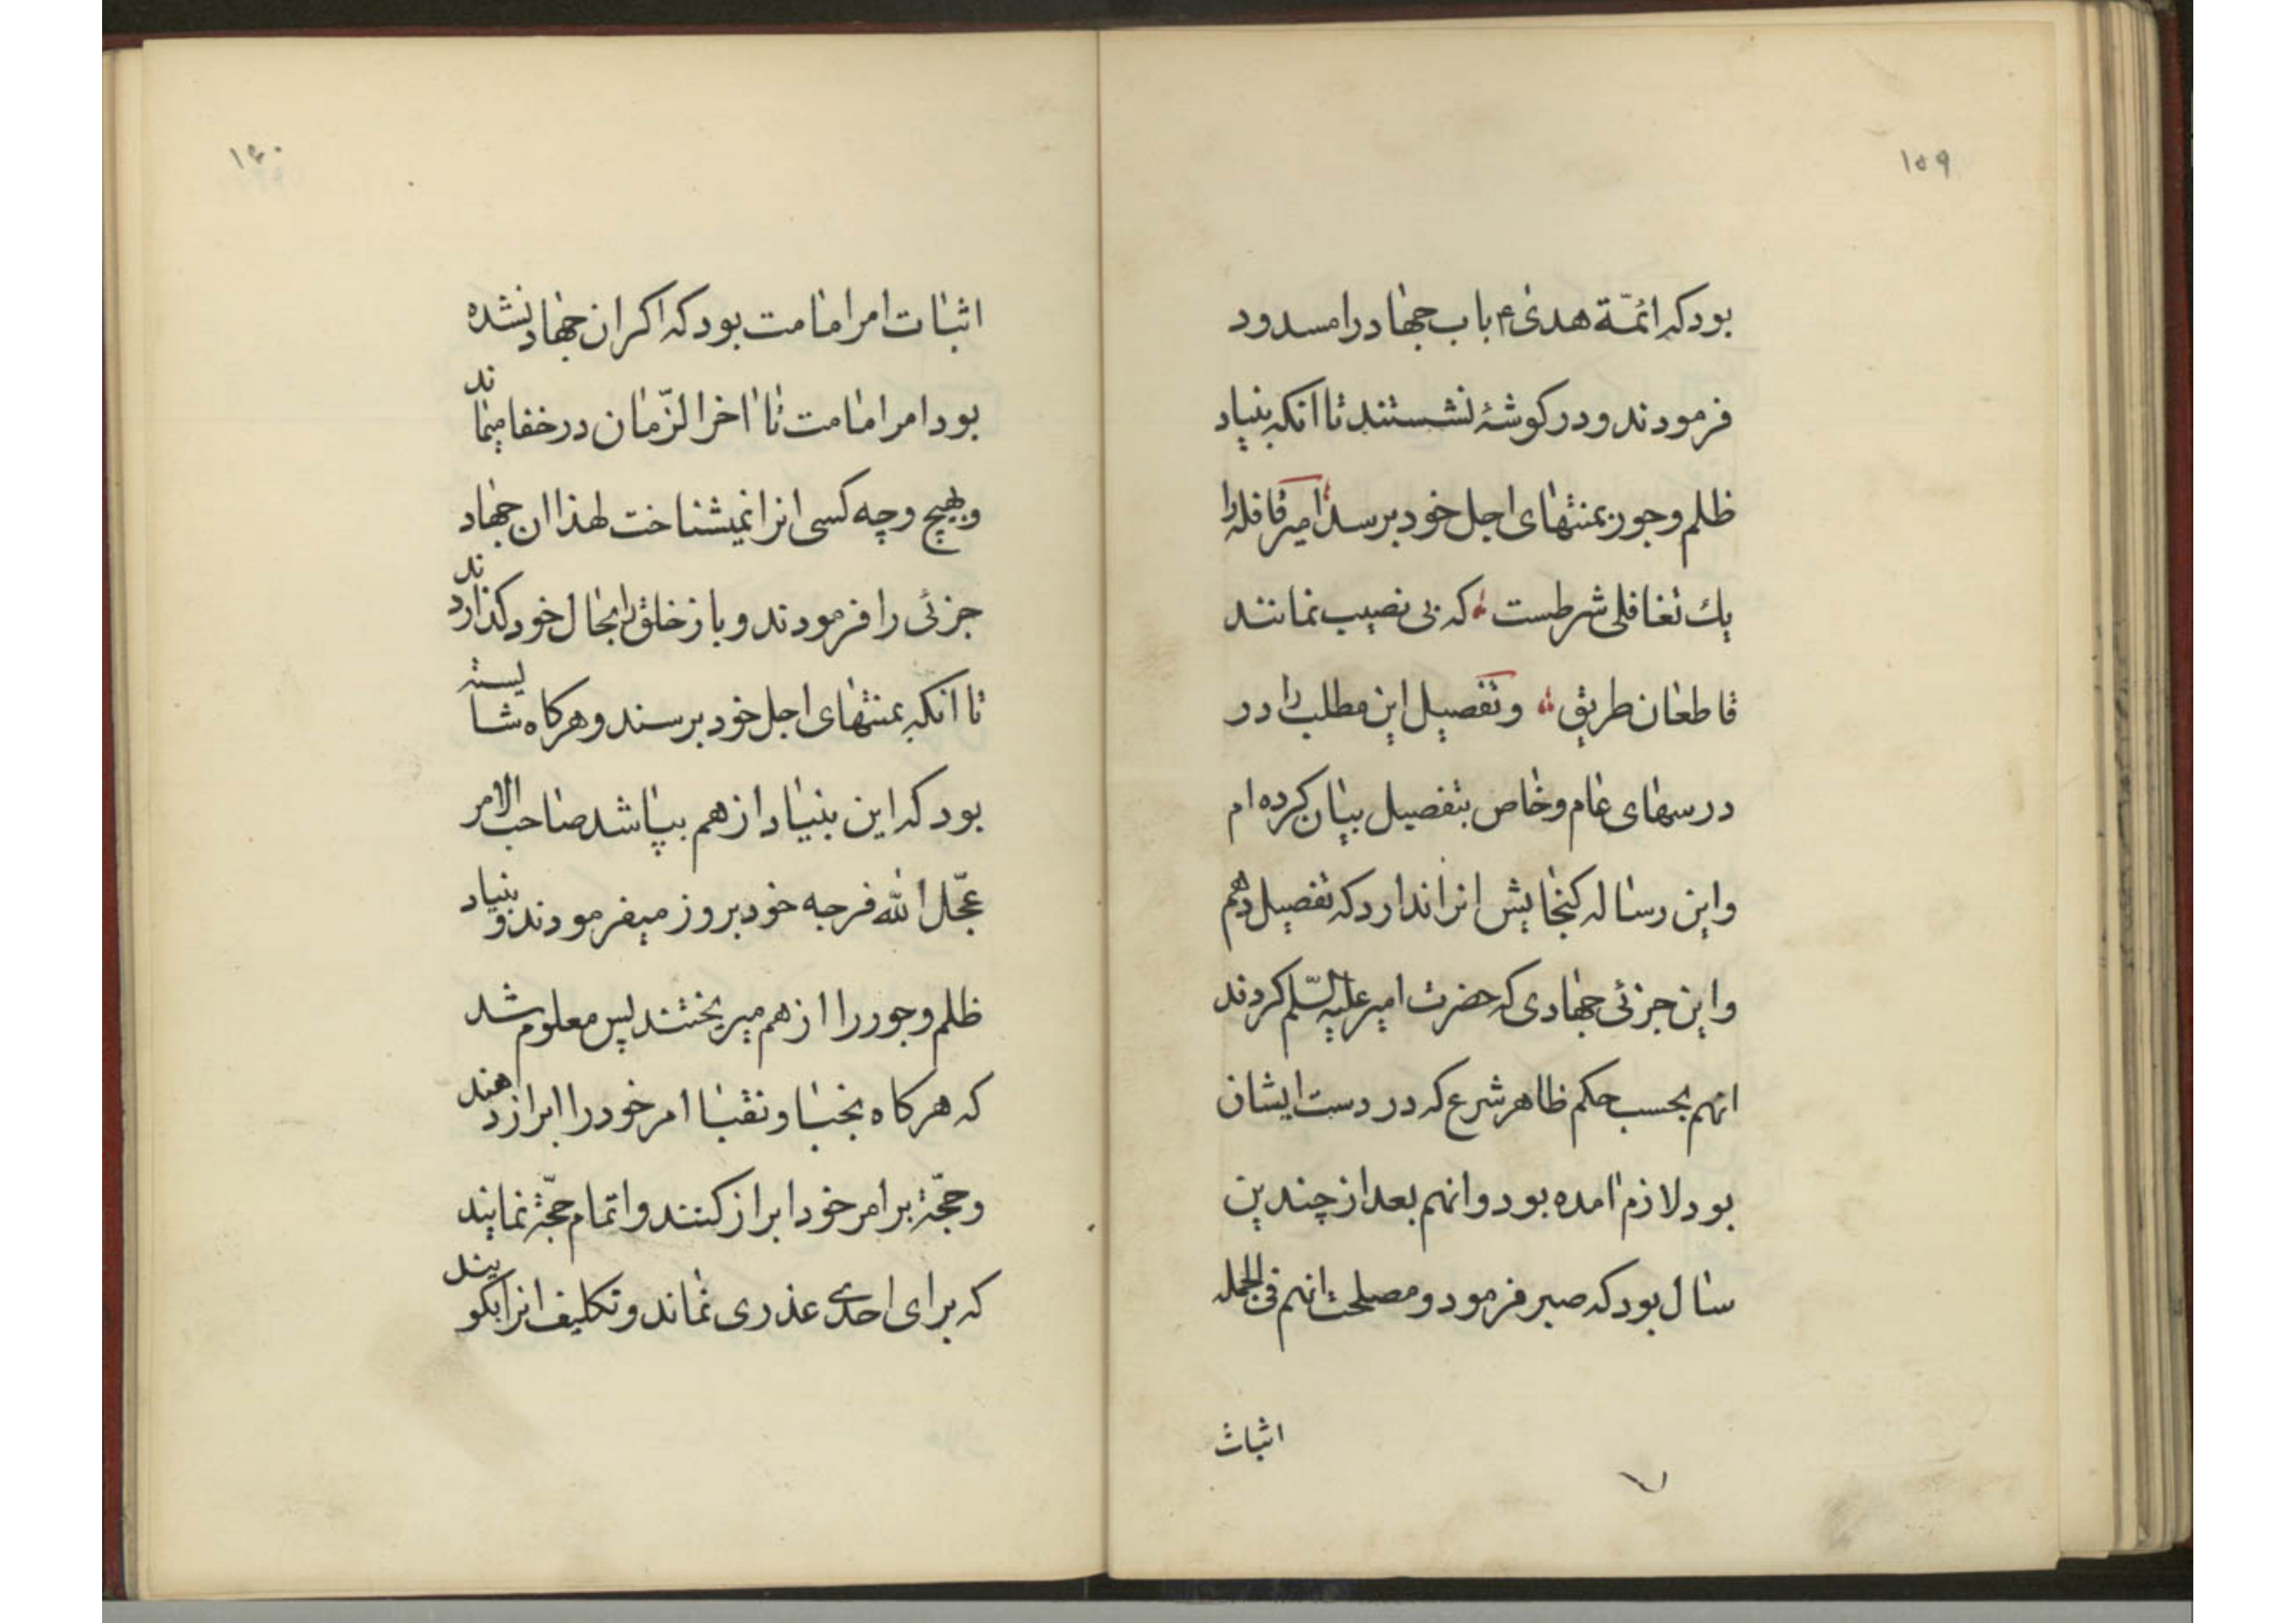 ۱۵۹
بود که ائمّة هدی ع باب جهاد را مسدود
فرمودند و در کوشهٔ نشستند تا انکه بنیاد
ظلم و جور بمنتهای اجل خود برسد امیر قافله را
یك تغافلی شرطست که بی نصیب نمانند
قاطعان طریق و تفصیل این مطلب را در
درسهای عام و خاص بتفصیل بیان کرده ام
و این رساله کنجایش انرا ندارد که تفصیل دهم
و این جزئی جهادی که حضرت امیر علیه السّلم کردند
انهم بحسب حکم ظاهر شرع که در دست ایشان
بود لازم امده بود و انهم بعد از چندین
سال بود که صبر فرمود و مصلحت انهم فی الجمله
اثبات
۱۶۰
اثبات امر امامت بود که اکر ان جهاد نشده
بود امر امامت تا اخر الزّمان در خفا میماند
و بهیچ وجه کسی انرا نمیشناخت لهذا ان جهاد
جزئی را فرمودند و باز خلق را بحال خود کذاردند
تا انکه بمنتهای اجل خود برسند و هرکاه شایسته
بود که این بنیاد از هم بپاشد صاحب الامر
عجّل الله فرجه خود بروز میفرمودند و بنیاد
ظلم و جور را از هم میریختند پس معلوم شد
که هرکاه نجبا و نقبا امر خود را ابراز دهند
و حجّة بر امر خود ابراز کنند و اتمام حجّة نمایند
که برای احدی عذری نماند و تکلیف انرا بکویند